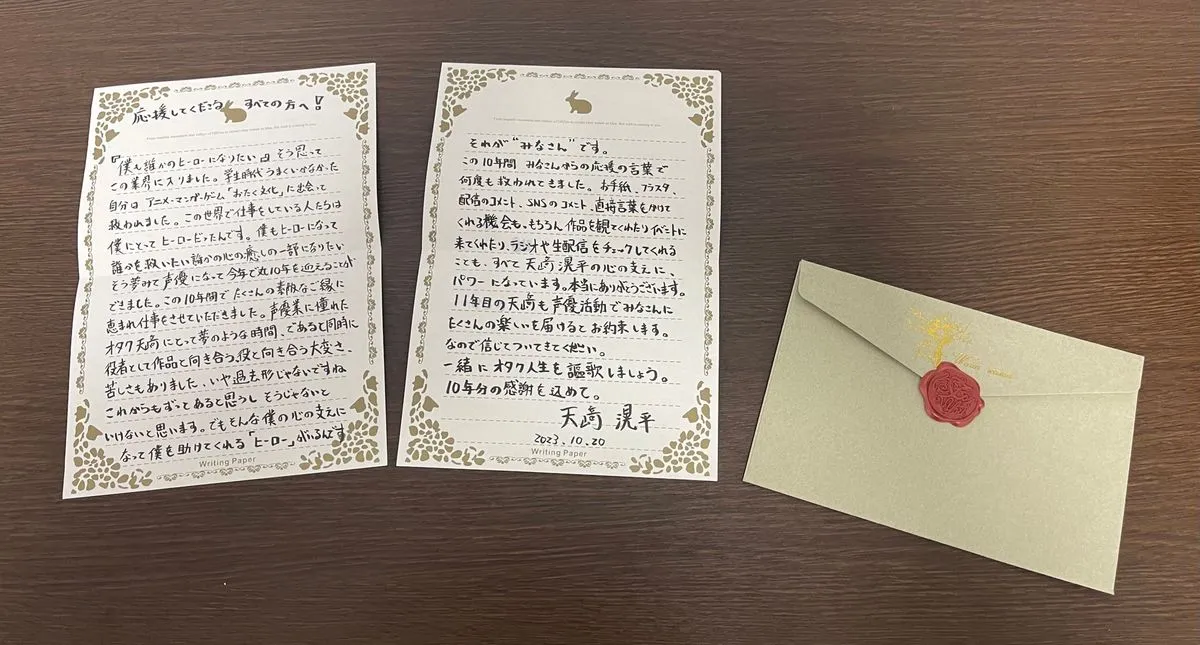 応援してくださる すべての方へ!
『僕も誰かのヒーローになりたい』そう思って
この業界に入りました。学生時代うまくいかなかった
自分は アニメ・マンガ・ゲーム「おたく文化」に出会って
救われました。この世界で仕事をしている人たちは
僕にとって ヒーローだったんです。僕もヒーローになって
誰かを救いたい誰かの心の癒しの一部になりたい
そう夢みて声優になって今年で丸10年を迎えることが
できました。この10年間でたくさんの素敵なご縁に
恵まれ仕事をさせていただきました。声優業に憧れた
オタク天﨑にとって夢のような時間、であると同時に
役者として作品と向き合う、役と向き合う大変さ、
苦しさもありました、いや過去形じゃないですね
これからもずっとあると思うし そうじゃないと
いけないと思います。でもそんな僕の心の支えに
なって僕を助けてくれる「ヒーロー」がいるんです
Writing Paper
それが“みなさん”です。
この10年間 みなさんからの応援の言葉で
何度も救われてきました。お手紙、フラスタ、
配信のコメント、SNSのコメント、直接言葉をかけて
くれる機会も、もちろん作品を観てくれたりイベントに
来てくれたり、ラジオや生配信をチェックしてくれる
ことも、すべて天﨑滉平の心の支えに、
パワーになっています。本当にありがとうございます。
11年目の天﨑も声優活動でみなさんに
たくさんの楽しいを届けるとお約束します。
なので信じてついてきてください。
一緒にオタク人生を謳歌しましょう。
10年分の感謝を込めて。
天﨑 滉平
2023.10.20
Writing Paper